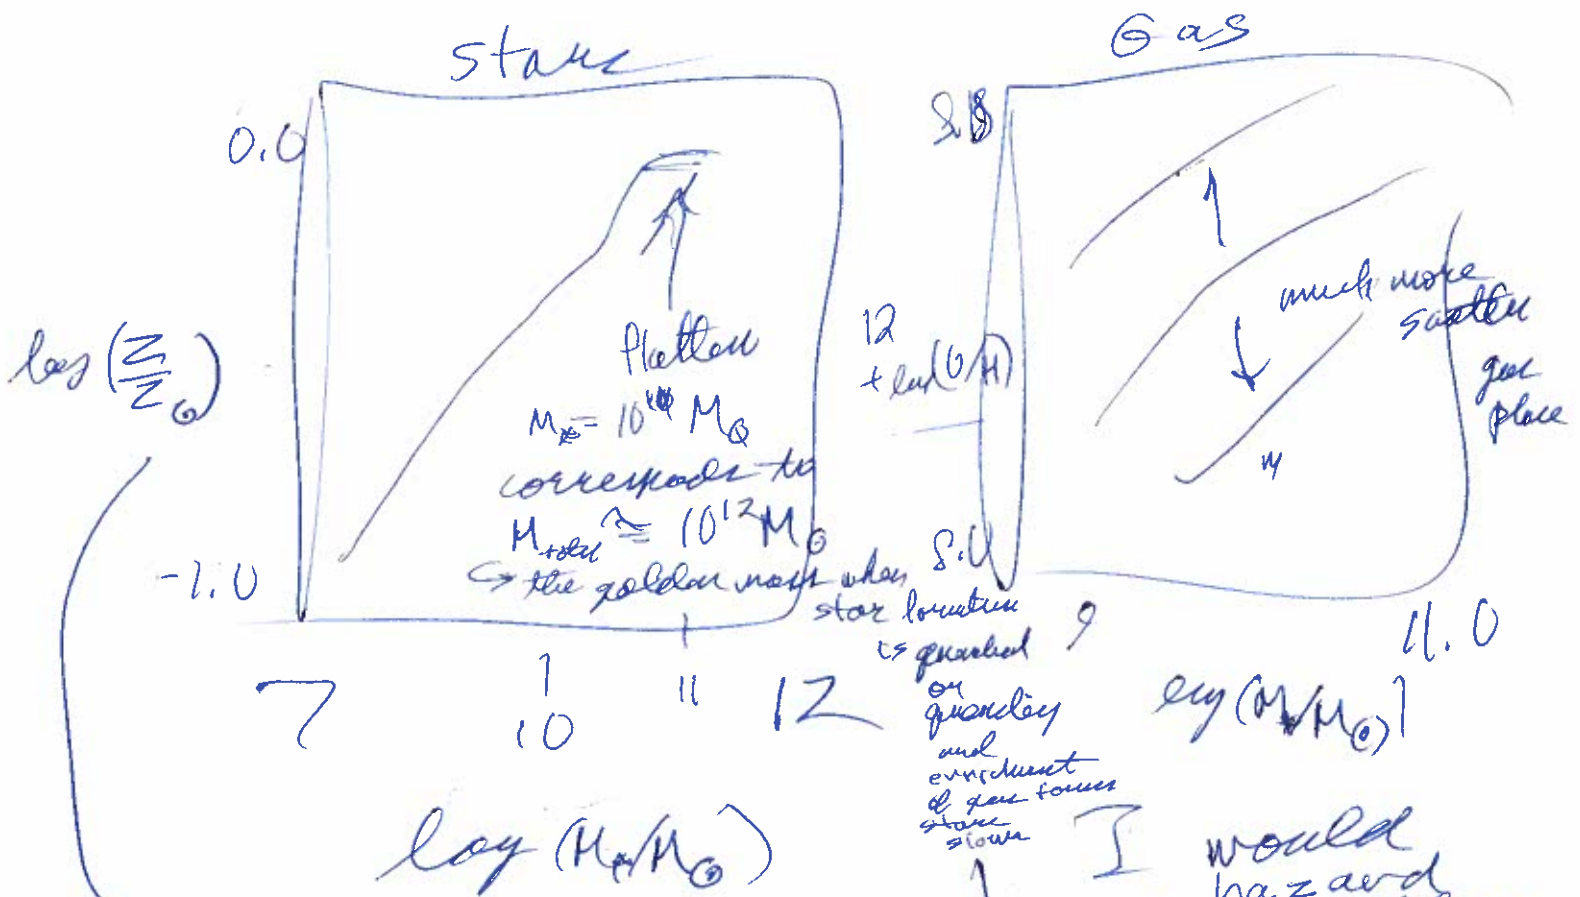 Stars
0.0
log (Z/Z☉)
-1.0
flatten
M* = 10^10 M☉
corresponds to
M_total ≅ 10^12 M☉
↳ the golden mass when
star formation
is quenched
or
quenching
and
enrichment
of gas forms
stars
slows
7
10
11
12
log (M*/M☉)
Gas
8.8
12
+ log(O/H)
8.0
much more
scatter
gas
place
9
11.0
log (M*/M☉)
I would
hazard